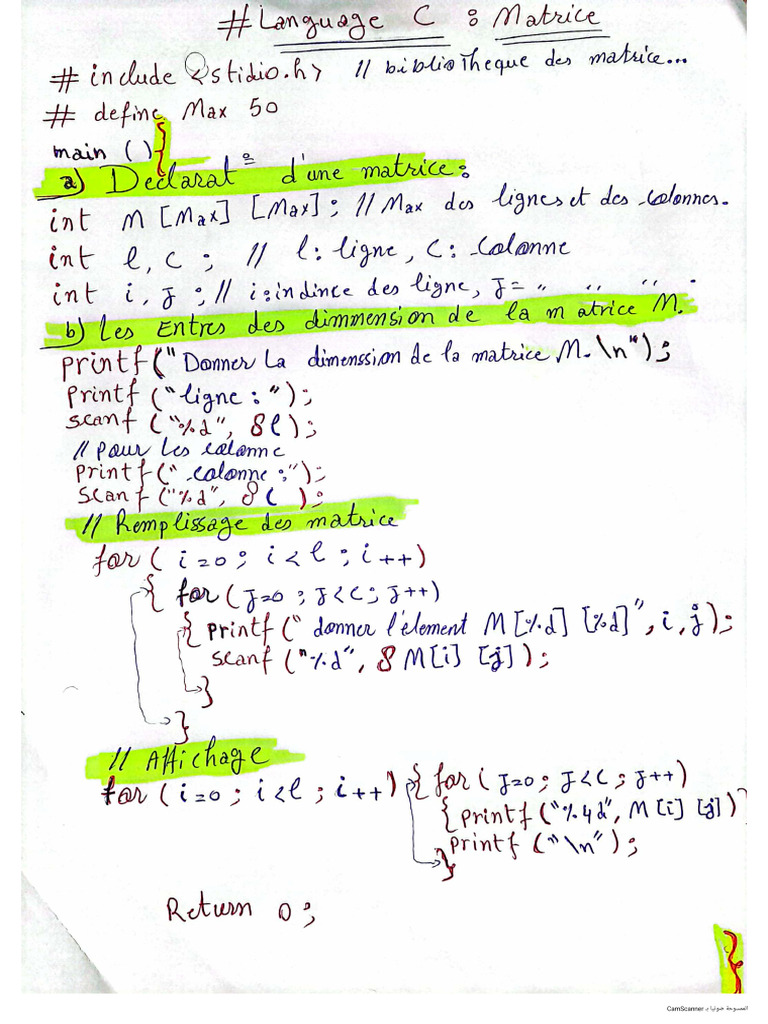 # Language C : Matrice
# include <stidio.h> // bibliotheque des matrice...
# define Max 50
main () {
a) Declarat° d'une matrice :
int M [Max] [Max] ; // Max des lignes et des colonnes.
int l, c ; // l : ligne, c : colonne
int i, j ; // i : indince des ligne, j = " " " .
b) Les Entres des dimmension de la matrice M.
printf(" Donner La dimenssion de la matrice M. \n");
printf ("ligne : ");
scanf ("%d", &l);
// pour les colonne
printf(" colonne :");
scanf ("%d", &c );
// Remplissage des matrice
for( i=0 ; i<l ; i++)
{ for (j=0 ; j<c ; j++)
{ printf (" donner l'element M [%d] [%d]", i, j);
scanf ("%d", & M[i] [j]);
}
}
// Affichage
for (i=0 ; i<l ; i++) { for (j=0 ; j<c ; j++)
{ printf ("%4d", M [i] [j]) }
printf ("\n");
}
Return 0 ;
}
الممسوحة ضوئيا بـ CamScanner